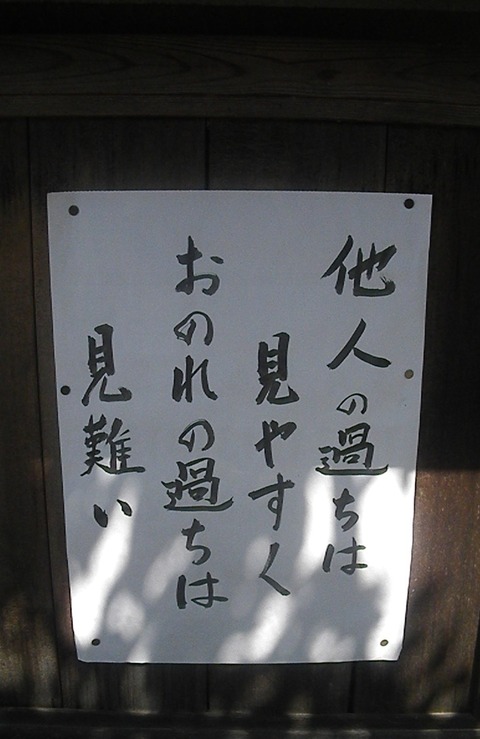 他人の過ちは
見やすく
おのれの過ちは
見難い